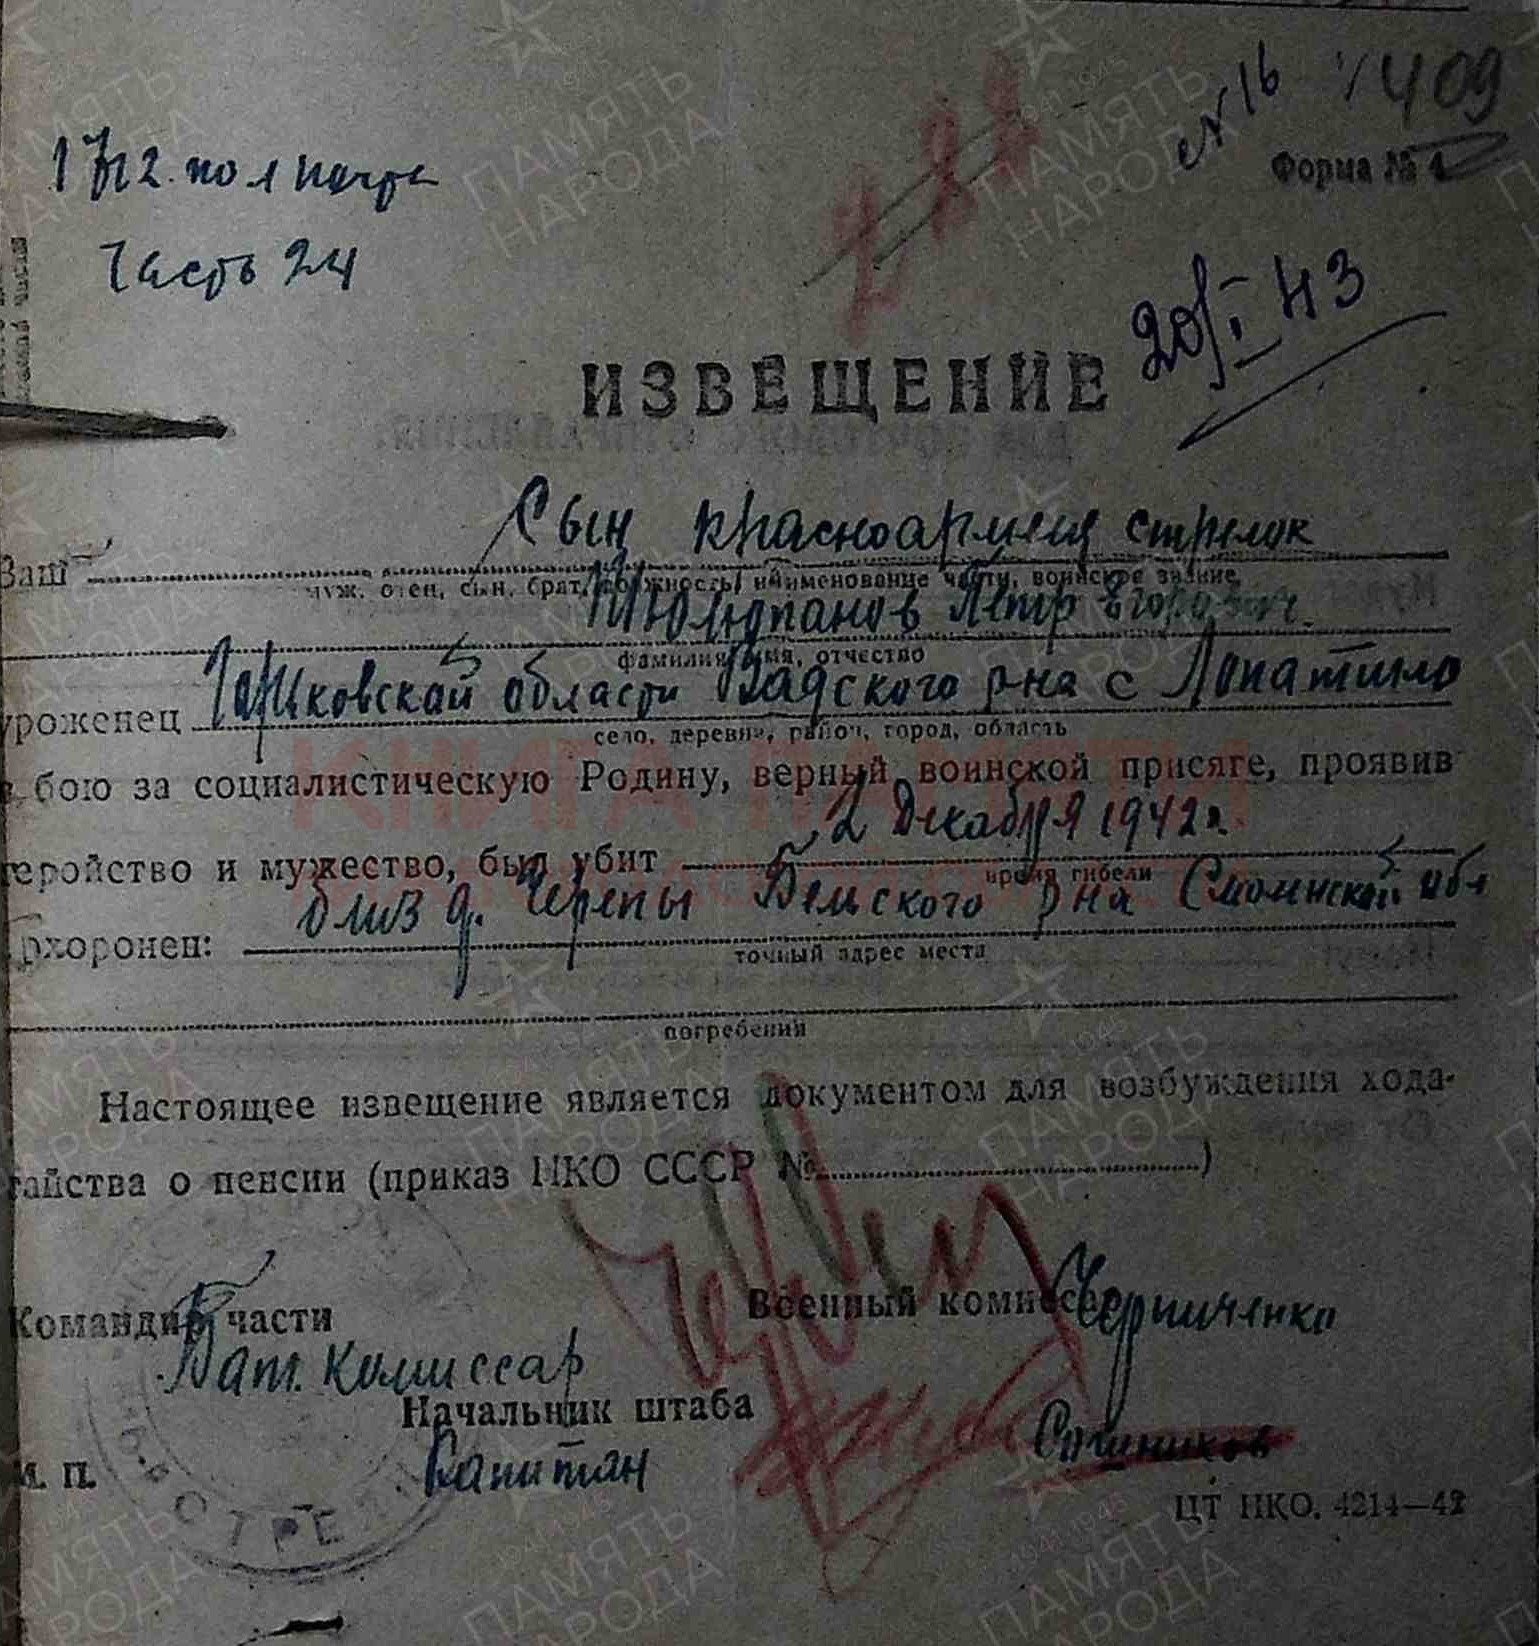 № 16 1409
Форма № 4
1712 пол почта
Часть 24
20/I 43
ИЗВЕЩЕНИЕ
Ваш Сын красноармеец стрелок
муж, отец, сын, брат, должность, наименование части, воинское звание,
Тюлюпанов Петр Егорович
фамилия, имя, отчество
уроженец Горьковской области Вадского р-на с Лопатино
село, деревня, район, город, область
в бою за социалистическую Родину, верный воинской присяге, проявив
геройство и мужество, был убит 2 декабря 1942 г.
время гибели
похоронен: близ д. Черепы Бельского р на Смоленской обл
точный адрес места
погребения
Настоящее извещение является документом для возбуждения хода-
тайства о пенсии (приказ НКО СССР № )
Командир части Военный комиссар
Бат. комиссар
Начальник штаба
Капитан Сошников
М. П.
ЦТ НКО. 4214—42
ПАМЯТЬ НАРОДА
1941 1945
КНИГА ПАМЯТИ